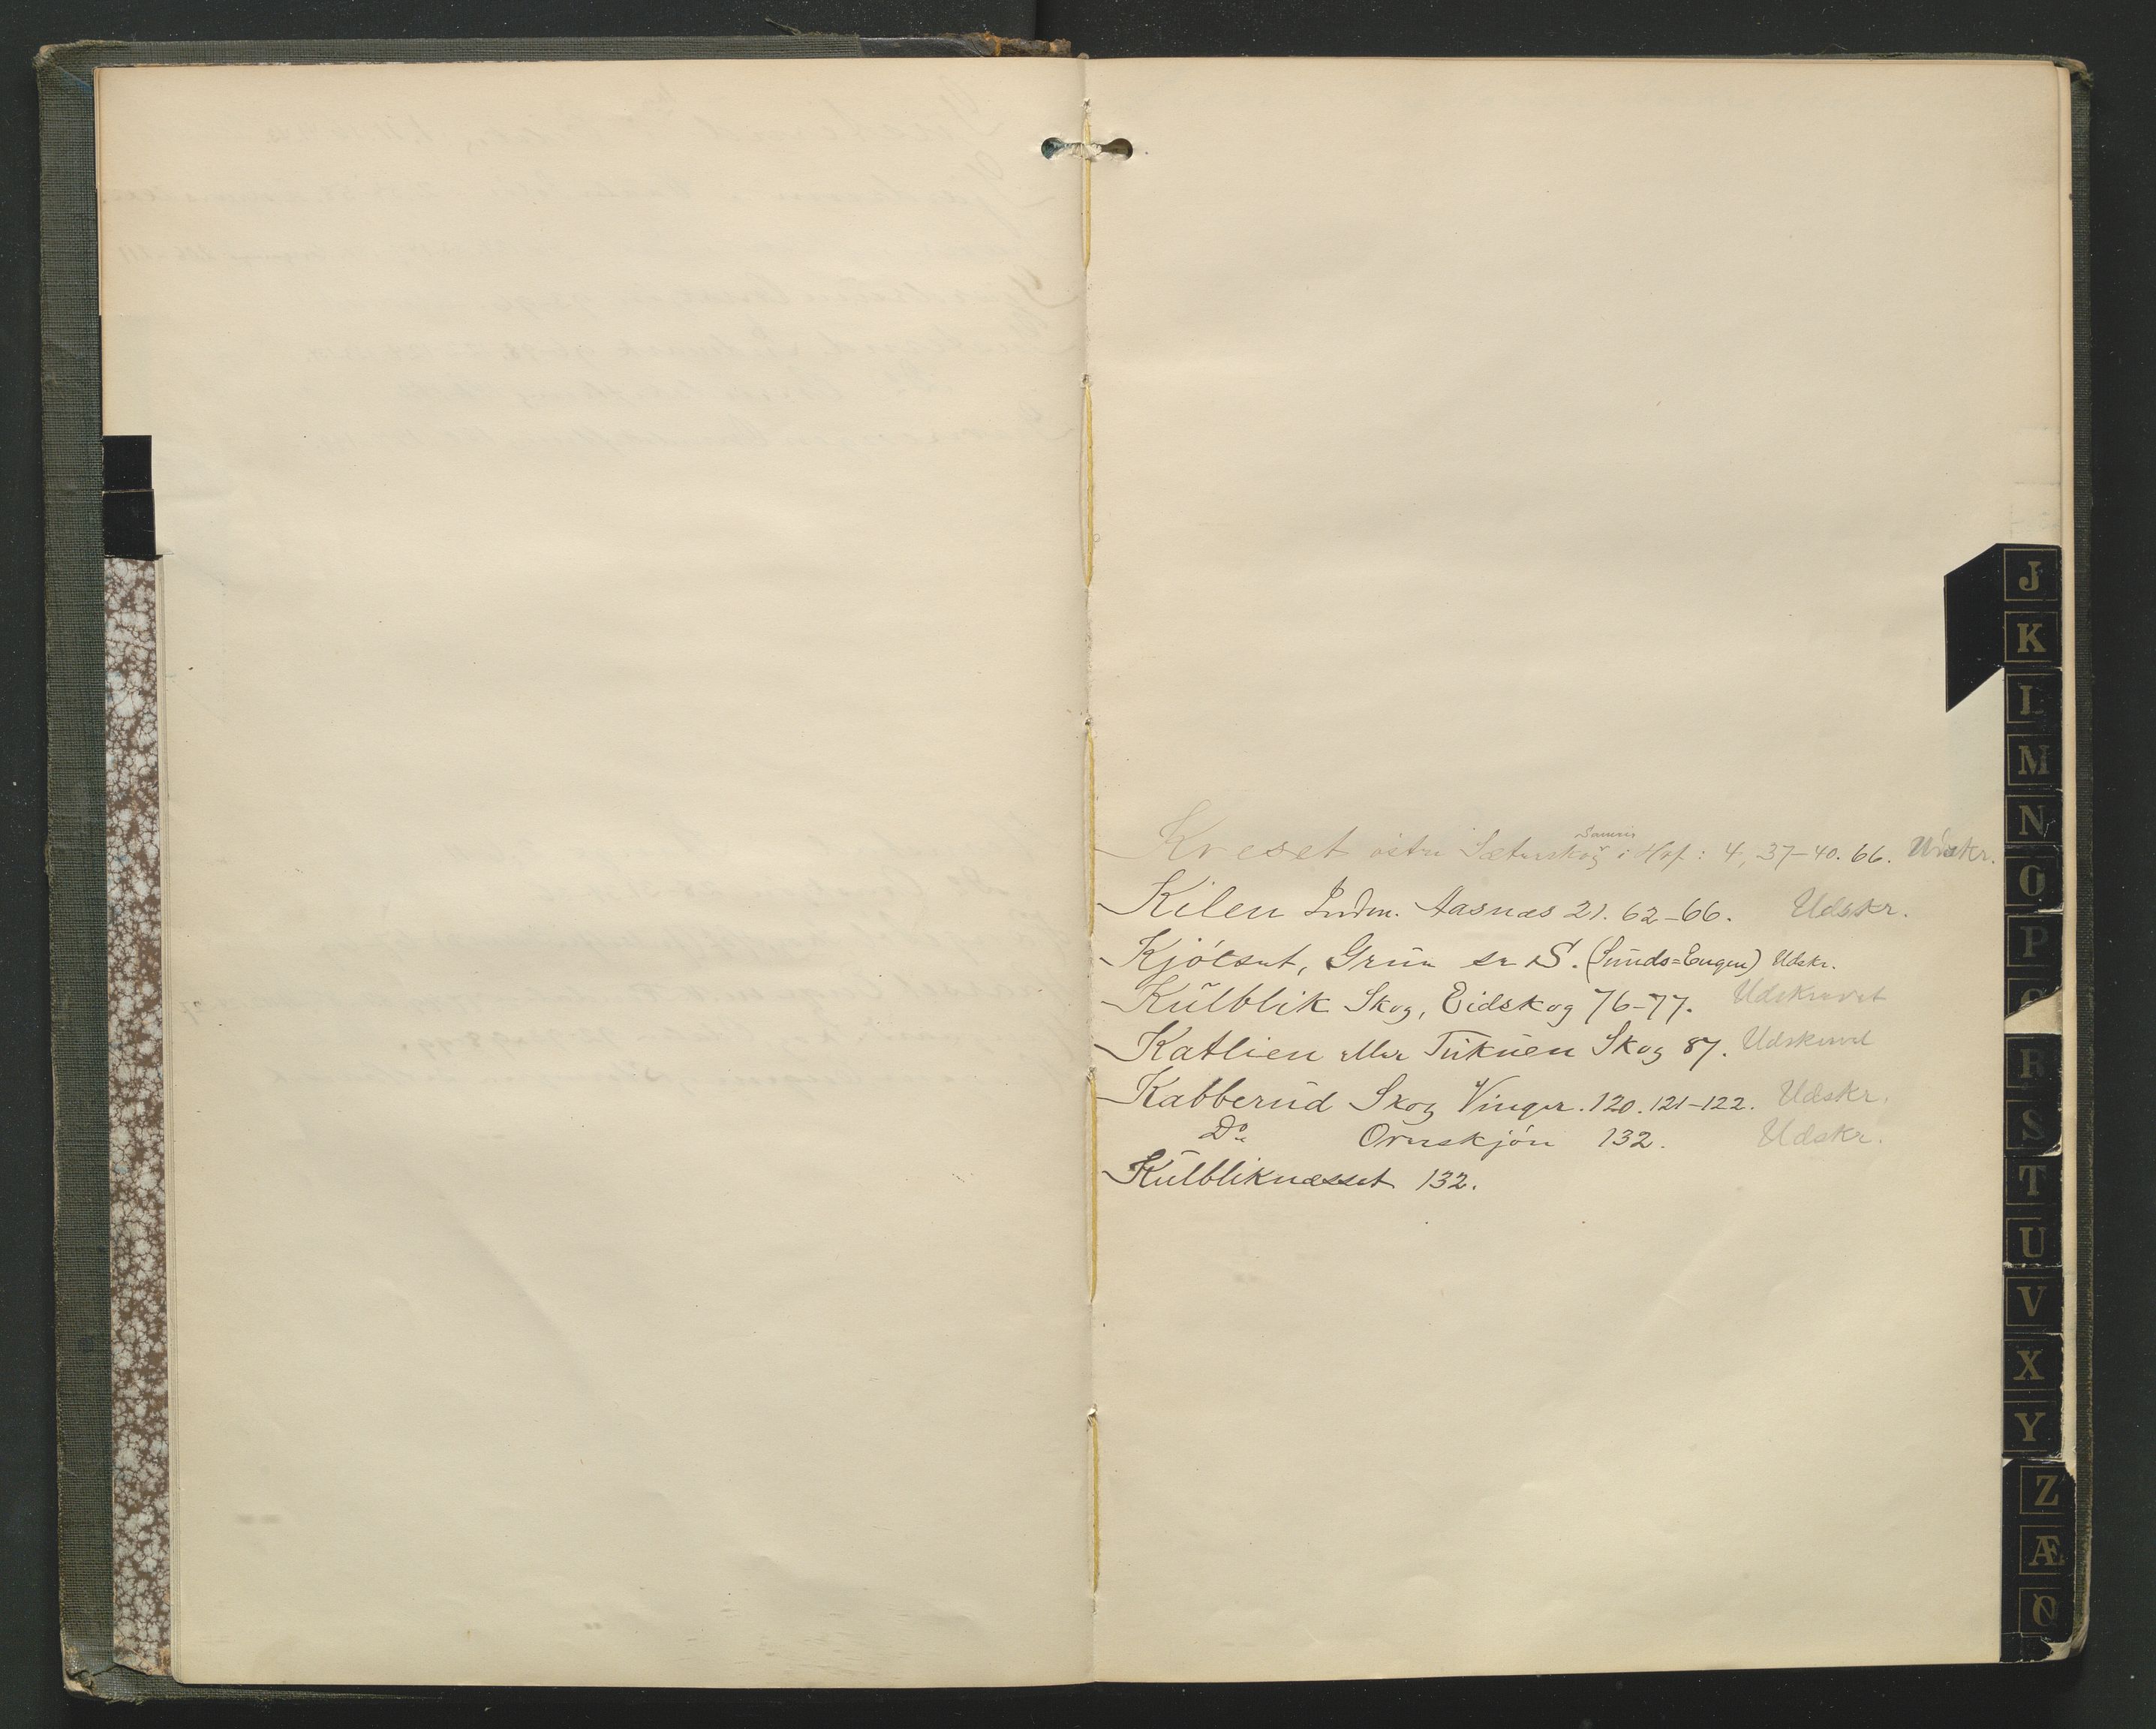 Kreset østre Sæterskog i Hof: 4, 37-40. 66. Udskr.
Kilen Indm. Aasnæs 21. 62-66. Udskr.
Kjölsæt, Grue se S. (Sunds=Engen) Udskr.
Kŭlblik Skog, Eidskog 76-77. Udskrevet
Katlien eller Tŭkŭen Skog 87. Udskrevet
Kabberŭd Skog Vinger. 120. 121-122. Udskr.
Do Ornskjön 132. Udskr.
Kŭlbliknæsset 132.
J
K
L
M
N
O
P
R
S
T
U
V
X
Y
Z
Æ
Ø